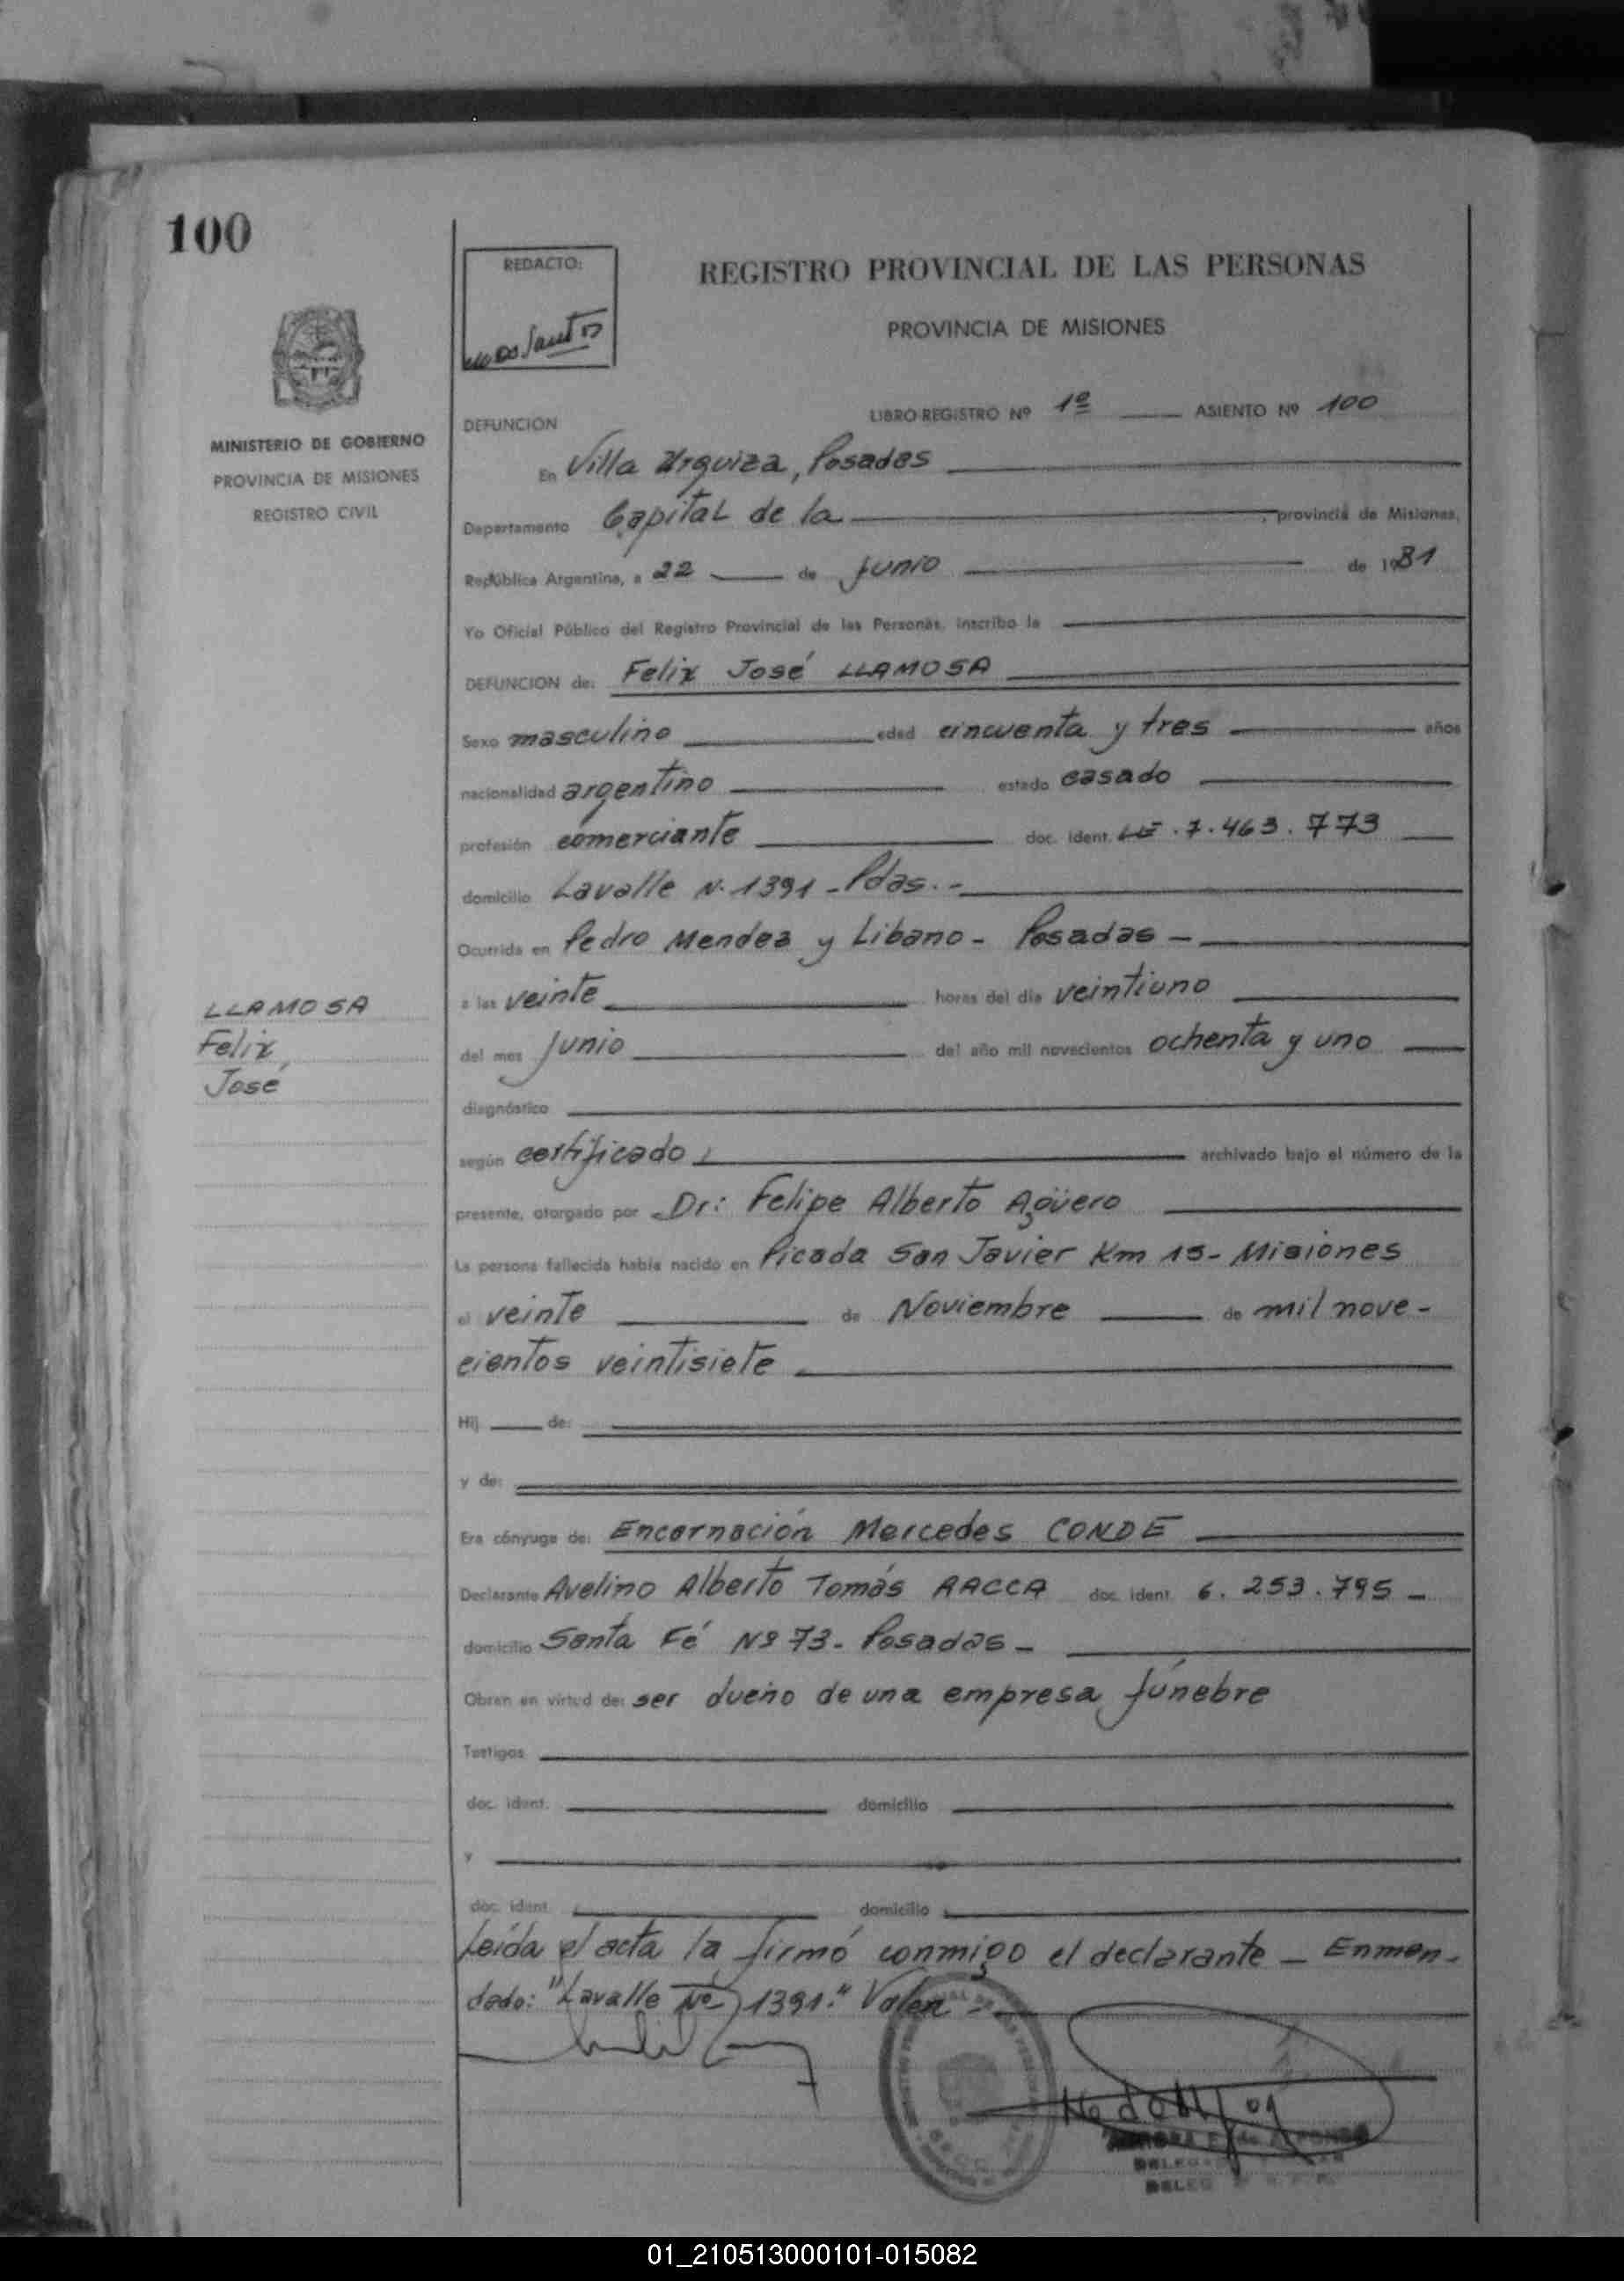 100
REDACTO:
REGISTRO PROVINCIAL DE LAS PERSONAS
PROVINCIA DE MISIONES
MINISTERIO DE GOBIERNO
PROVINCIA DE MISIONES
REGISTRO CIVIL
DEFUNCION
LIBRO-REGISTRO Nº 1º ASIENTO Nº 100
En Villa Urquiza, Posadas
Departamento Capital de la , provincia de Misiones,
República Argentina, a 22 de Junio de 1981
Yo Oficial Público del Registro Provincial de las Personas, inscribo la
DEFUNCION de: Felix José LLAMOSA
Sexo masculino edad cincuenta y tres años
nacionalidad argentino estado casado
profesión comerciante doc. ident. LE. 7.463.773
domicilio Lavalle N. 1391 - Pdas. -
Ocurrida en Pedro Mendez y Libano - Posadas -
a las veinte horas del día veintiuno
del mes Junio del año mil novecientos ochenta y uno
LLAMOSA
Felix
José
diagnóstico
según certificado, archivado bajo el número de la
presente, otorgado por Dr: Felipe Alberto Agüero
La persona fallecida había nacido en Picada San Javier Km 15 - Misiones
el veinte de Noviembre de mil nove-
cientos veintisiete
Hij de:
y de:
Era cónyuge de: Encarnación Mercedes CONDE
Declarante Avelino Alberto Tomás AACCA doc. ident. 6.253.795 -
domicilio Santa Fé Nº 73 - Posadas -
Obran en virtud de: ser dueño de una empresa fúnebre
Testigos
doc. ident. domicilio
y
doc. ident. domicilio
Leída el acta la firmó conmigo el declarante - Enmen-
dado: "Lavalle Nº 1391." Valen -
01_210513000101-015082